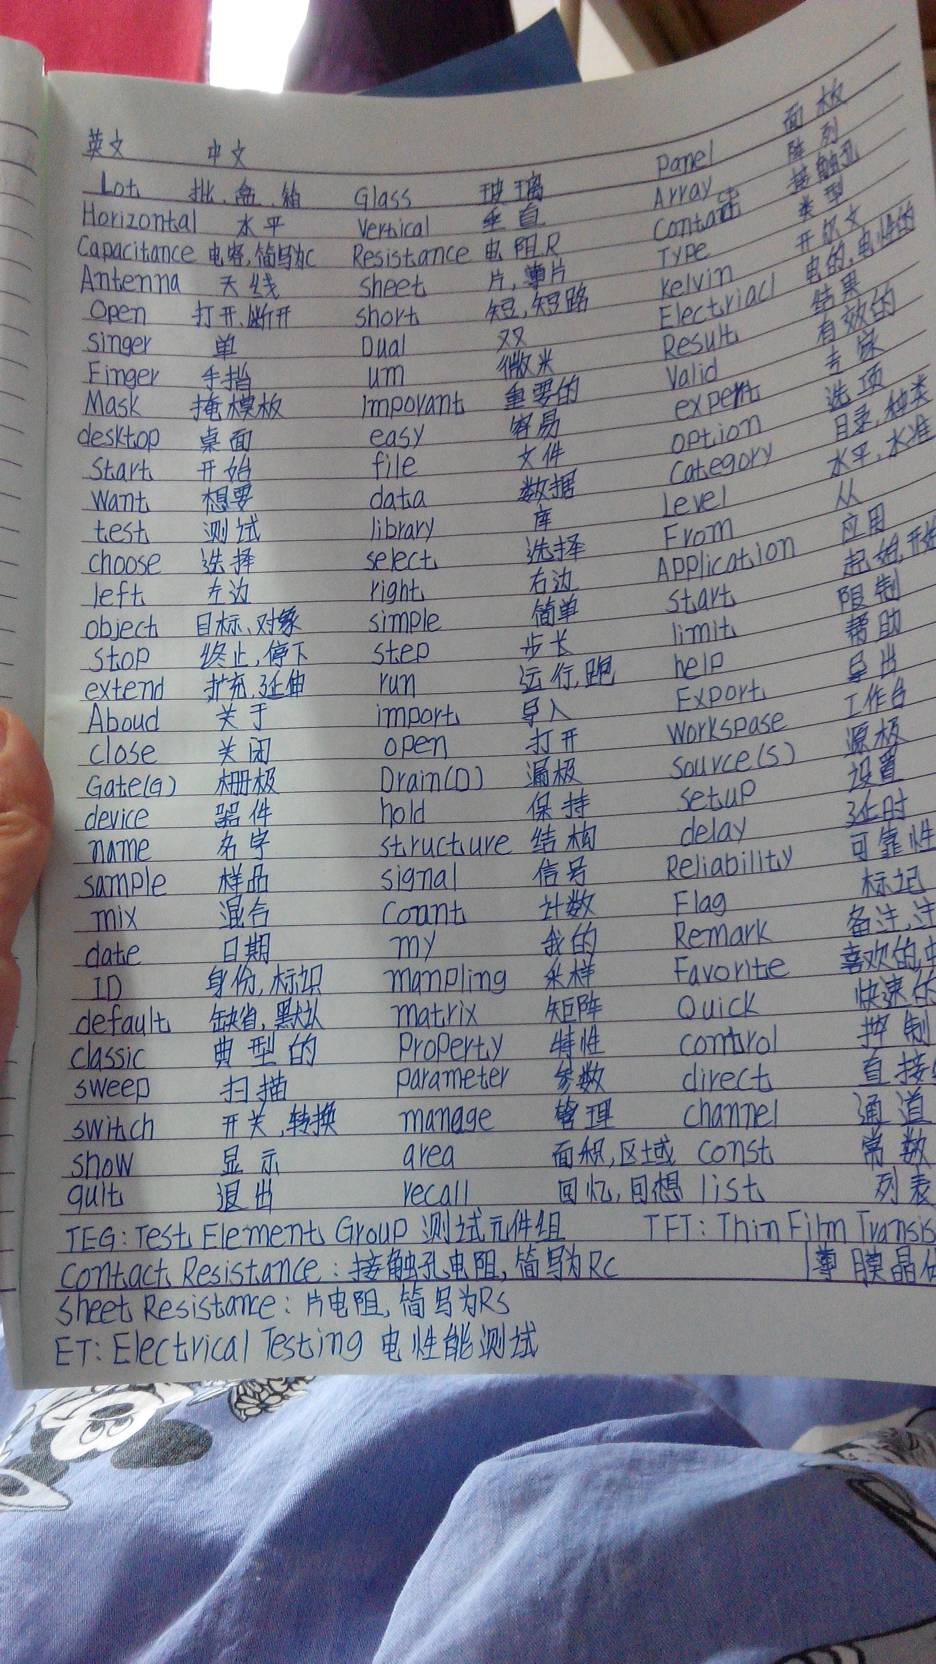 英文 中文
Lot 批、盒、箱 Glass 玻璃 Panel 面板
Horizontal 水平 Vertical 垂直 Array 阵列
Capacitance 电容,简写为C Resistance 电阻R Contact 接触孔
Antenna 天线 sheet 片,薄片 Type 类型
Open 打开,断开 short 短,短路 kelvin 开尔文
singer 单 Dual 双 Electriacl 电的,电性的
Finger 手指 um 微米 Result 结果
Mask 掩模板 Impovant 重要的 Valid 有效的
desktop 桌面 easy 容易 expent 专家
start 开始 file 文件 option 选项
Want 想要 data 数据 Category 目录,种类
test 测试 library 库 Level 水平,水准
choose 选择 select 选择 From 从
left 左边 right 右边 Application 应用
object 目标、对象 simple 简单 start 起始,开始
stop 终止,停下 step 步长 limit 限制
extend 扩充,延伸 run 运行,跑 help 帮助
Aboud 关于 import 导入 Export 导出
close 关闭 open 打开 Workspase 工作台
Gate(G) 栅极 Drain(D) 漏极 Source(S) 源极
device 器件 hold 保持 setup 设置
name 名字 structure 结构 delay 延时
sample 样品 signal 信号 Reliability 可靠性
mix 混合 Count 计数 Flag 标记
date 日期 my 我的 Remark 备注,注
ID 身份,标识 manpling 采样 Favorite 喜欢的,中
default 缺省,默认 matrix 矩阵 Quick 快速的
classic 典型的 Property 特性 control 控制
sweep 扫描 parameter 参数 direct 直接
switch 开关,转换 manage 管理 channel 通道
show 显示 area 面积,区域 const 常数
quit 退出 recall 回忆,回想 list 列表
TEG: Test Element Group 测试元件组 TFT: Thin Film Transis
Contact Resistance: 接触孔电阻,简写为Rc 薄膜晶体
sheet Resistance: 片电阻,简写为Rs
ET: Electrical Testing 电性能测试